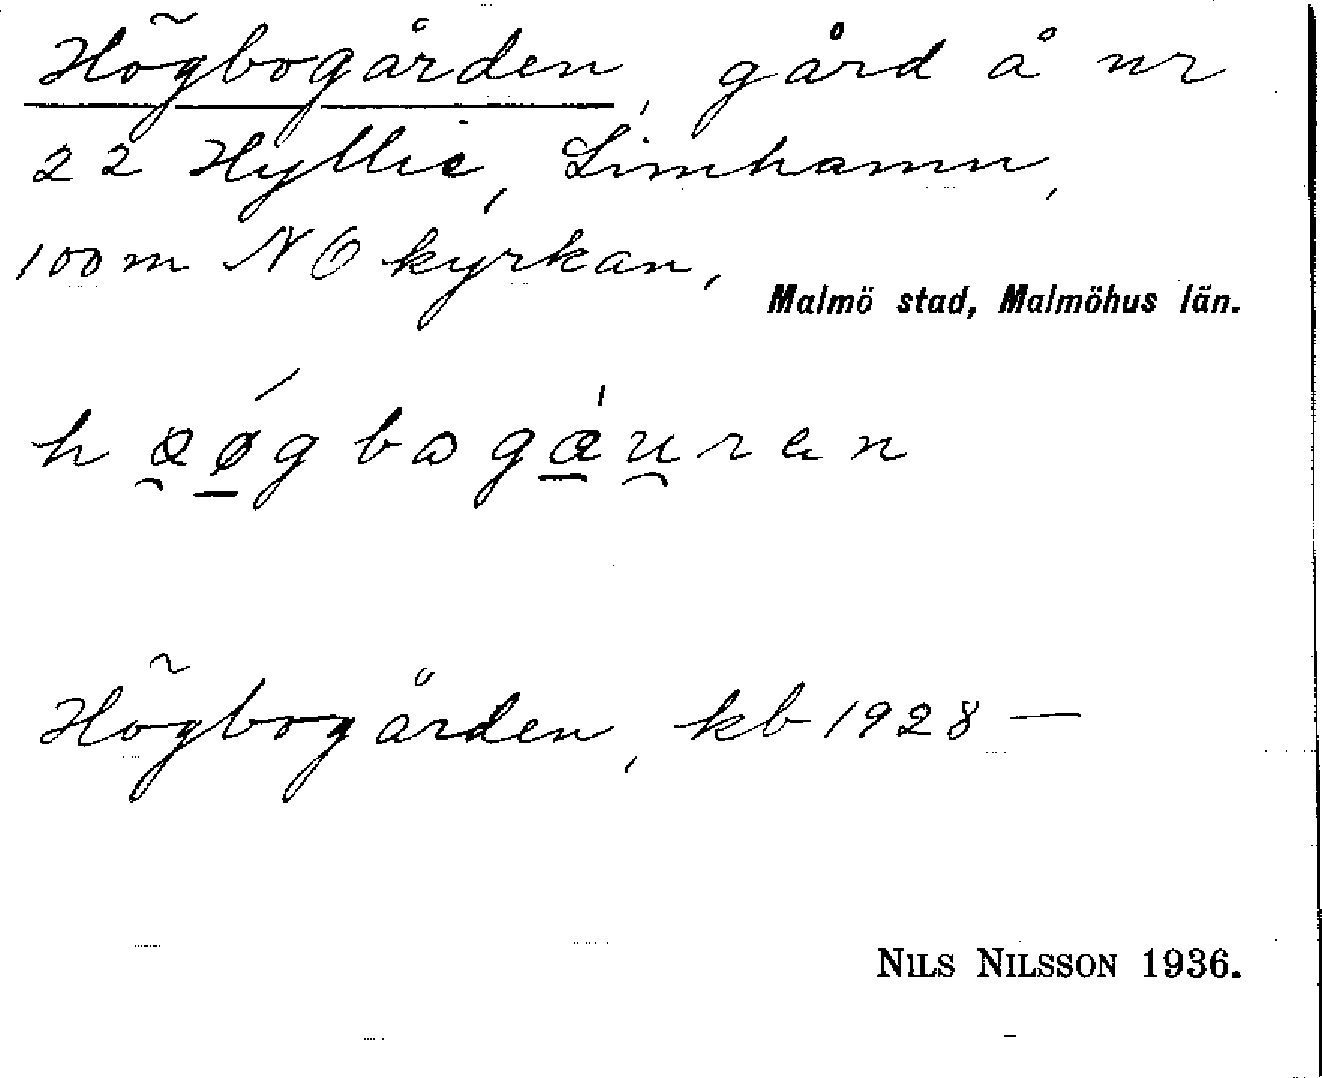 Högbogården, gård å nr
22 Hyllie, Limhamn,
100 m NO kyrkan,
Malmö stad, Malmöhus län.
Högbogården, kb 1928 —
NILS NILSSON 1936.